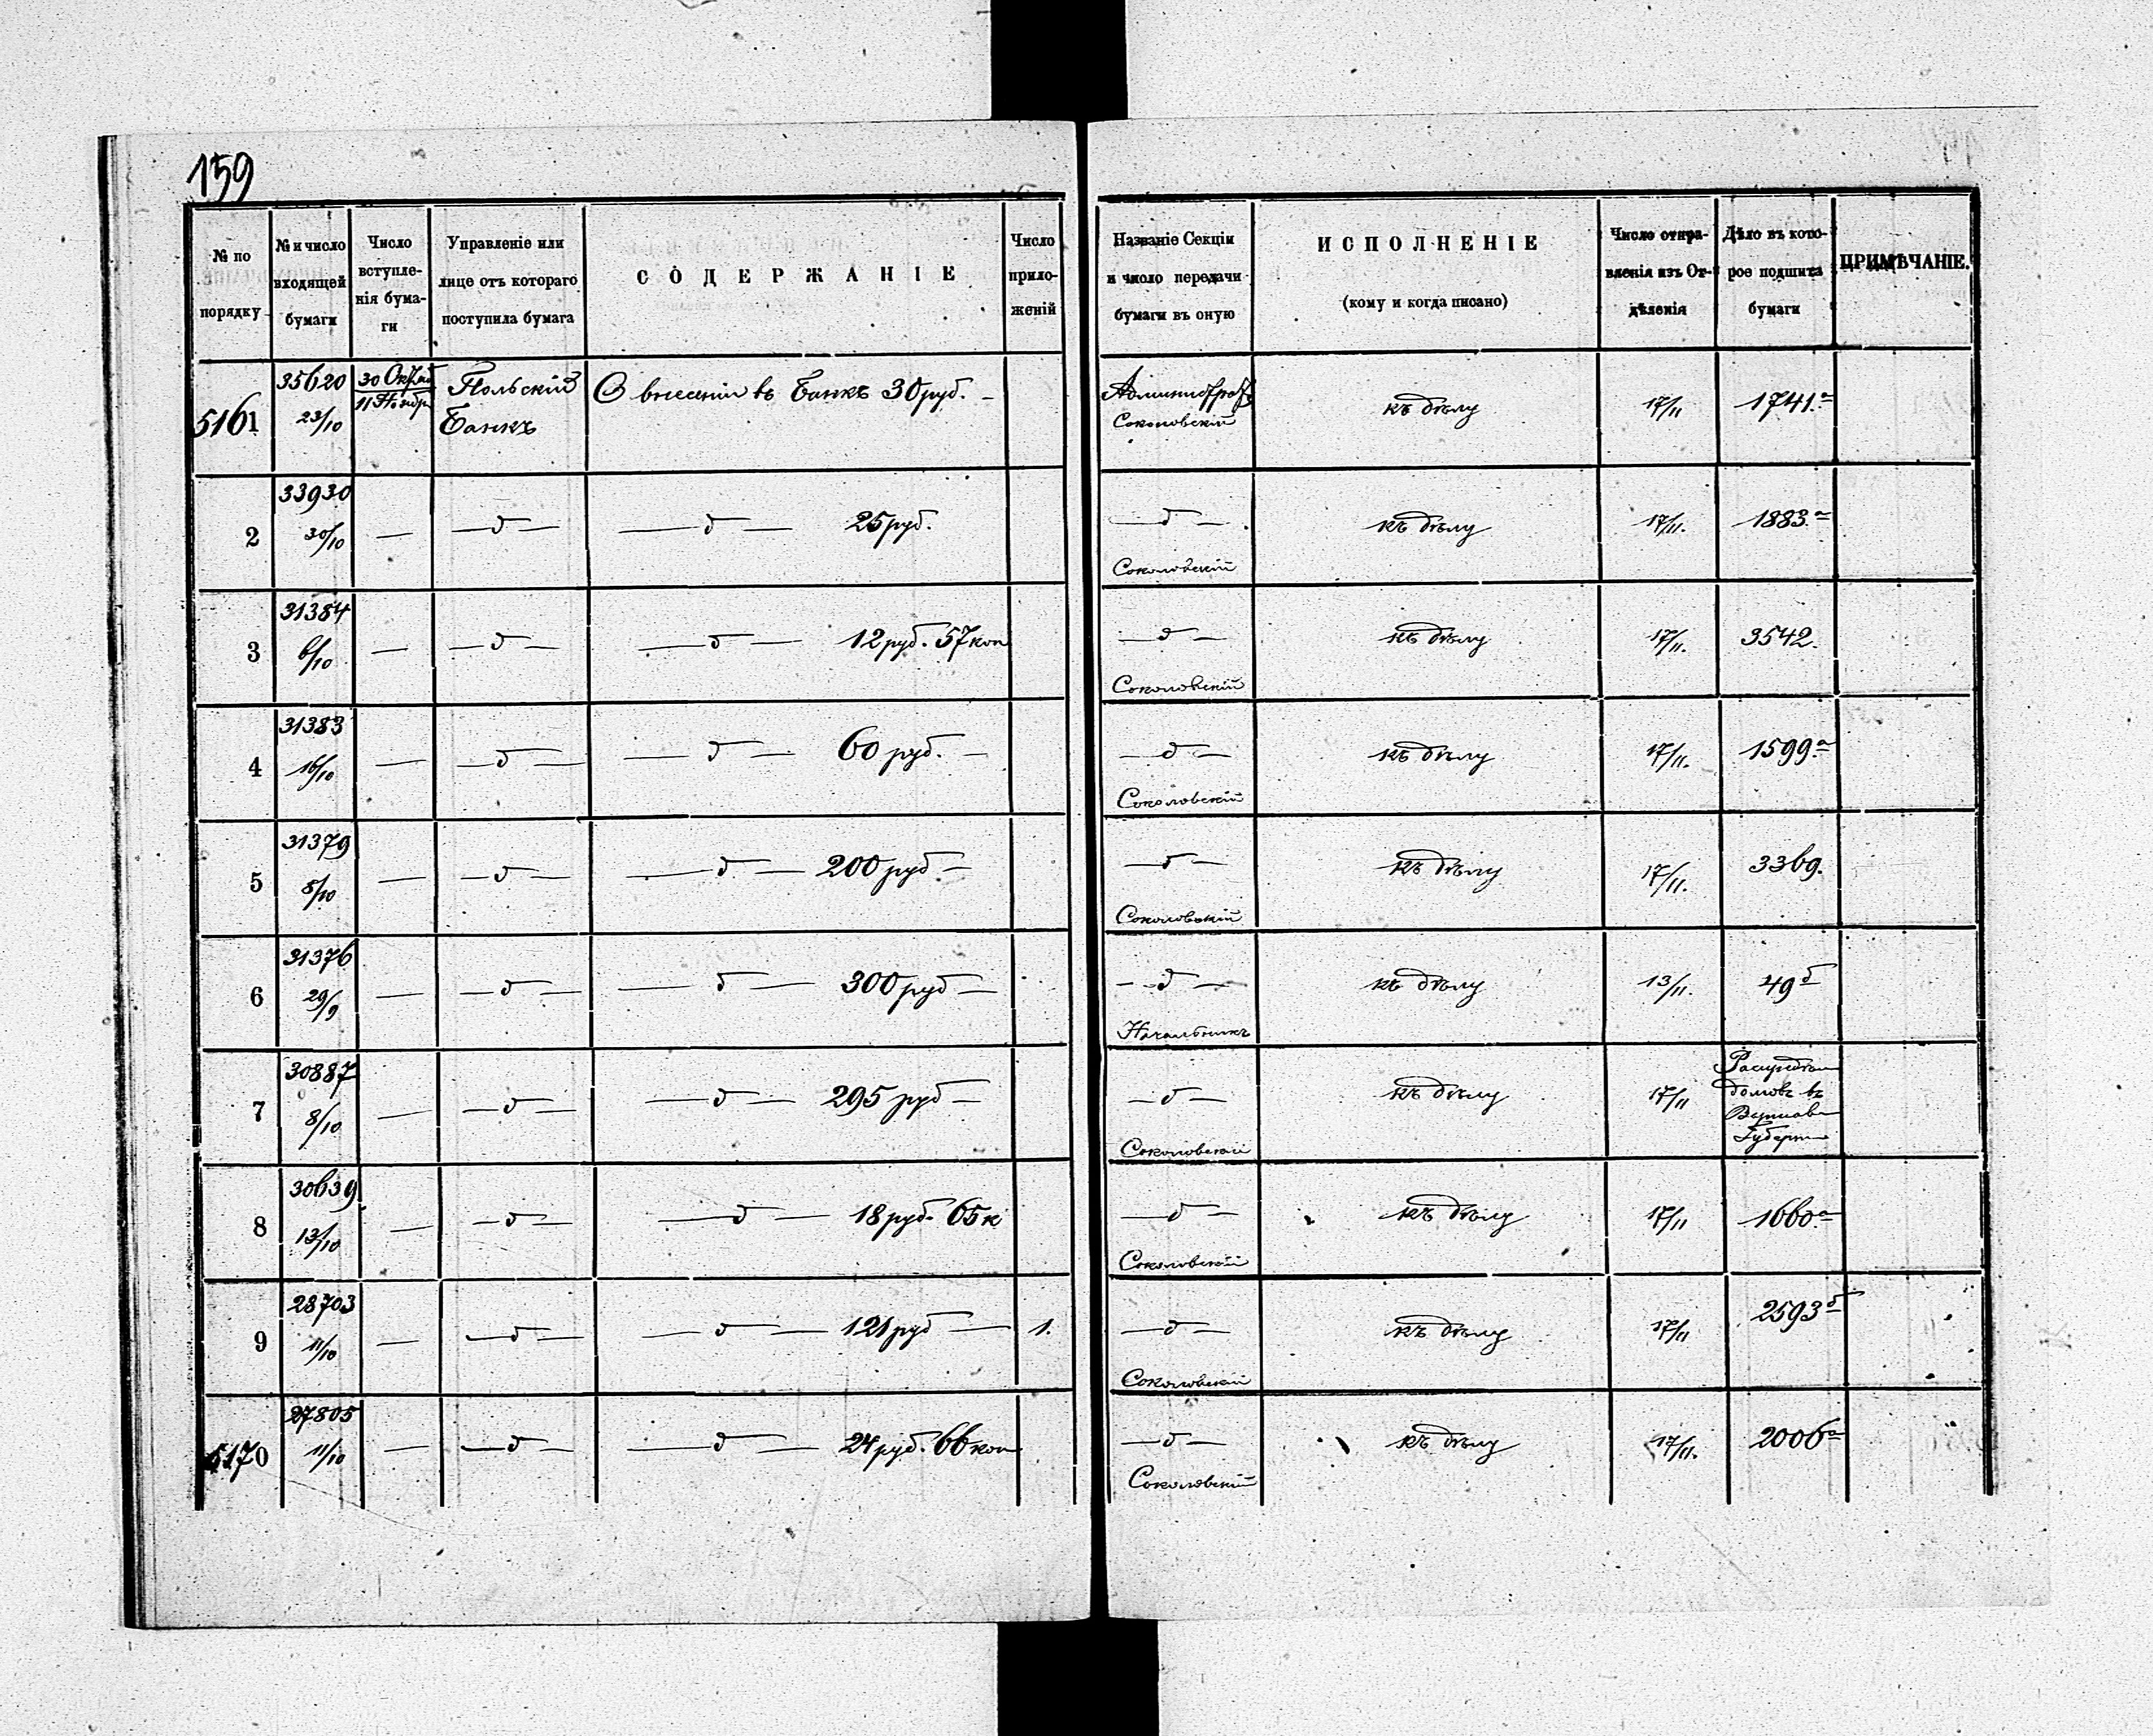 159
№ по порядку
№ и число входящей бумаги
Число вступле-нія бума-ги
Управленіе или лице отъ котораго поступила бумага
СОДЕРЖАНІЕ
Число прило-женій
Названіе Секціи и число передачи бумаги въ оную
ИСПОЛНЕНІЕ (кому и когда писано)
Число отпра-вленія изъ От-дѣленія
Дѣло въ кото-рое подшита бумаги
ПРИМѢЧАНІЕ.
5161 35620 23/10 30 Октяб 11 Ноябр Польскій Банкъ О внесеніи въ Банкъ 30 руб. — Соколовскій къ дѣлу 17/11 1741.а
2 33930 30/10 — — д — — д — 25 руб. — д — Соколовскій къ дѣлу 17/11. 1883.а
3 31384 6/10 — — д — — д — 12 руб. 57 коп — д — Соколовскій къ дѣлу 17/11. 3542.
4 31383 16/10 — — д — — д — 60 руб. — — д — Соколовскій къ дѣлу 17/11. 1599.а
5 31379 8/10 — — д — — д — 200 руб — — д — Соколовскій къ дѣлу 17/11. 3369.
6 31376 29/9 — — д — — д — 300 руб — — д — Начальникъ къ дѣлу 13/11. 49 б
7 30887 8/10 — — д — — д — 295 руб — — д — Соколовскій къ дѣлу 17/11 домовъ въ Губерн
8 30639 13/10 — — д — — д — 18 руб. 65 к — д — Соколовскій къ дѣлу 17/11 1660 а
9 28703 11/10 — — д — — д — 121 руб — 1. — д — Соколовскій къ дѣлу 17/11 2593 б
5170 27805 11/10 — — д — — д — 24 руб. 66 коп — д — Соколовскій къ дѣлу 17/11. 2006 а